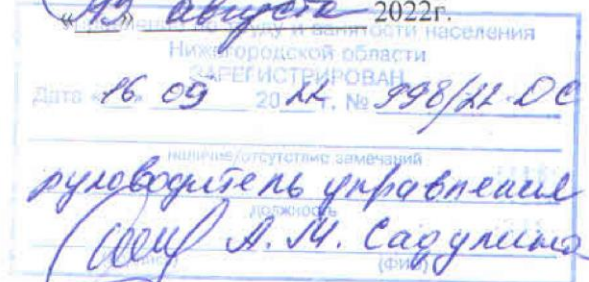 «13» августа 2022г.
Управление по труду и занятости населения
Нижегородской области
ЗАРЕГИСТРИРОВАН
Дата «16» 09 2022 г. № 998/22-ДС
наличие/отсутствие замечаний
руководитель управления
должность
А. М.
(ФИО)